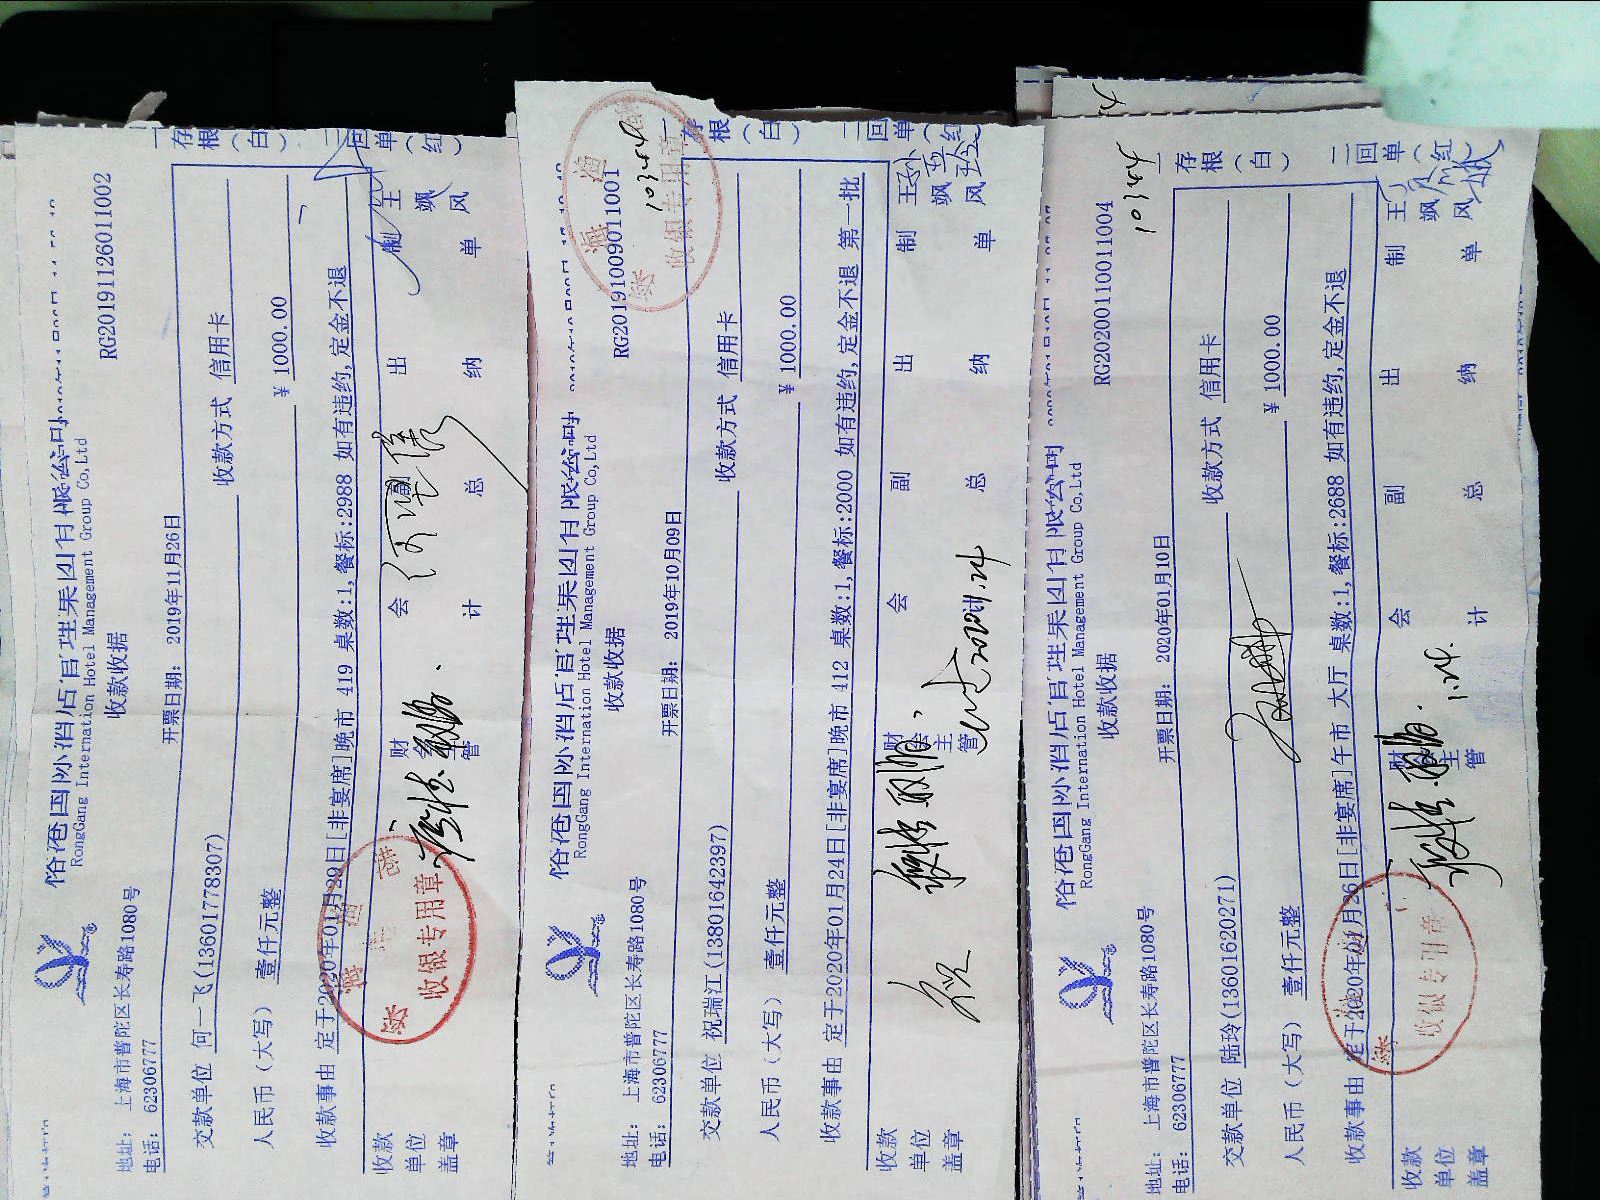 RG20191126011002
RongGang International Hotel Management Group Co,Ltd
收款收据
地址: 上海市普陀区长寿路1080号
电话: 62306777
开票日期: 2019年11月26日
一存根(白) 二回单(红)
交款单位 何一飞(13601778307) 收款方式 信用卡
人民币(大写) 壹仟元整 ¥ 1000.00
收款事由 定于2020年01月29日[非宴席]晚市 419 桌数:1,餐标:2988 如有违约,定金不退
收款单位盖章 财会主管 会计 副总 出纳 制单 王飒风
收银专用章
RG20191009011001
RongGang International Hotel Management Group Co,Ltd
收款收据
地址: 上海市普陀区长寿路1080号
电话: 62306777
开票日期: 2019年10月09日
一存根(白) 二回单(红)
交款单位 祝瑞江(13801642397) 收款方式 信用卡
人民币(大写) 壹仟元整 ¥ 1000.00
收款事由 定于2020年01月24日[非宴席]晚市 412 桌数:1,餐标:2000 如有违约,定金不退 第一批
收款单位盖章 财会主管 会计 副总 出纳 制单 王飒风
收银专用章
RG20200110011004
RongGang International Hotel Management Group Co.Ltd
收款收据
地址: 上海市普陀区长寿路1080号
电话: 62306777
开票日期: 2020年01月10日
一存根(白) 二回单(红)
交款单位 陆玲(13601620271) 收款方式 信用卡
人民币(大写) 壹仟元整 ¥ 1000.00
收款事由 定于2020年01月26日[非宴席]午市 大厅 桌数:1,餐标:2688 如有违约,定金不退
收款单位盖章 财会主管 会计 副总 出纳 制单 王飒风
1.24.